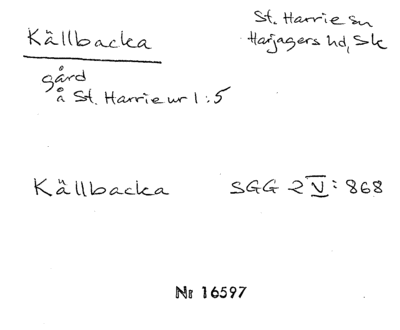 Källbacka
St. Harrie sn
Harjagers hd, Sk
gård
å St. Harrie nr 1:5
Källbacka SGG 2 V: 868
Nr 16597